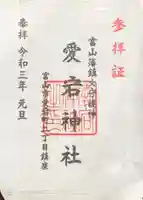 参拝証
富山藩鎮火守護神
愛宕神社
富山市愛宕町二丁目鎮座
参拝 令和三年 元旦